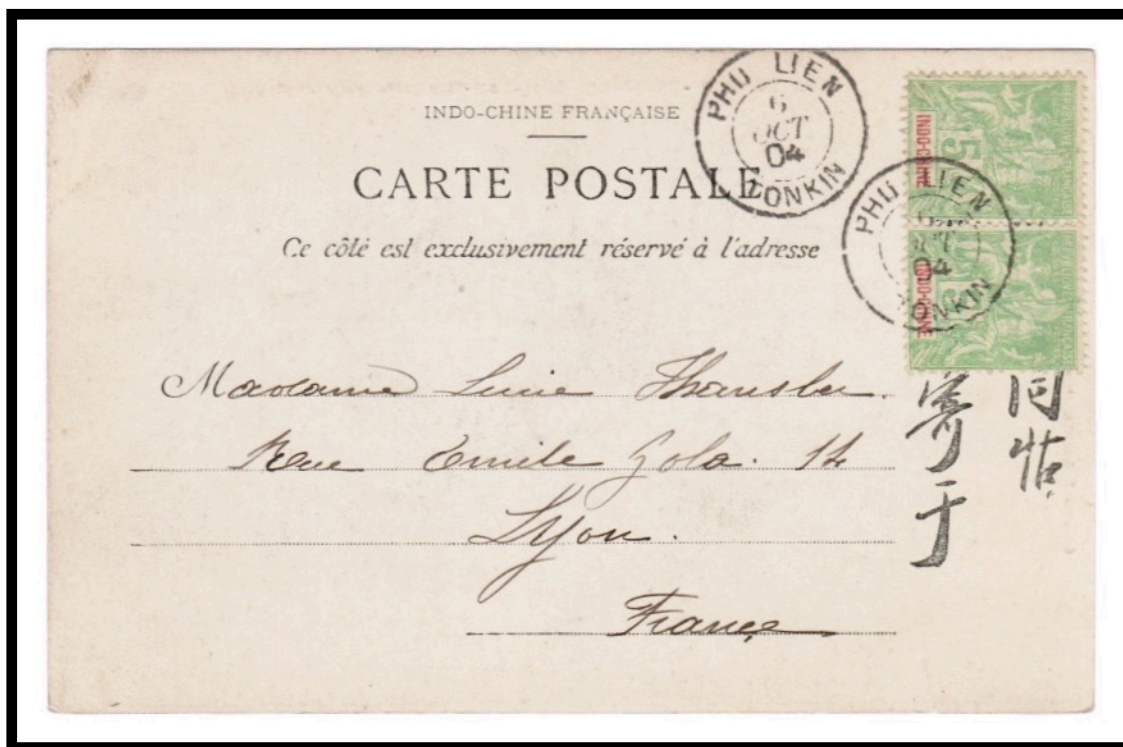 INDO-CHINE FRANÇAISE
CARTE POSTALE
Ce côté est exclusivement réservé à l'adresse
PHU LIEN
6
OCT
04
TONKIN
INDO-CHINE
5
PHU LIEN
OCT
04
TONKIN
INDO-CHINE
Madame Lucie
Rue Emile Zola. 14
Lyon.
France
寄于